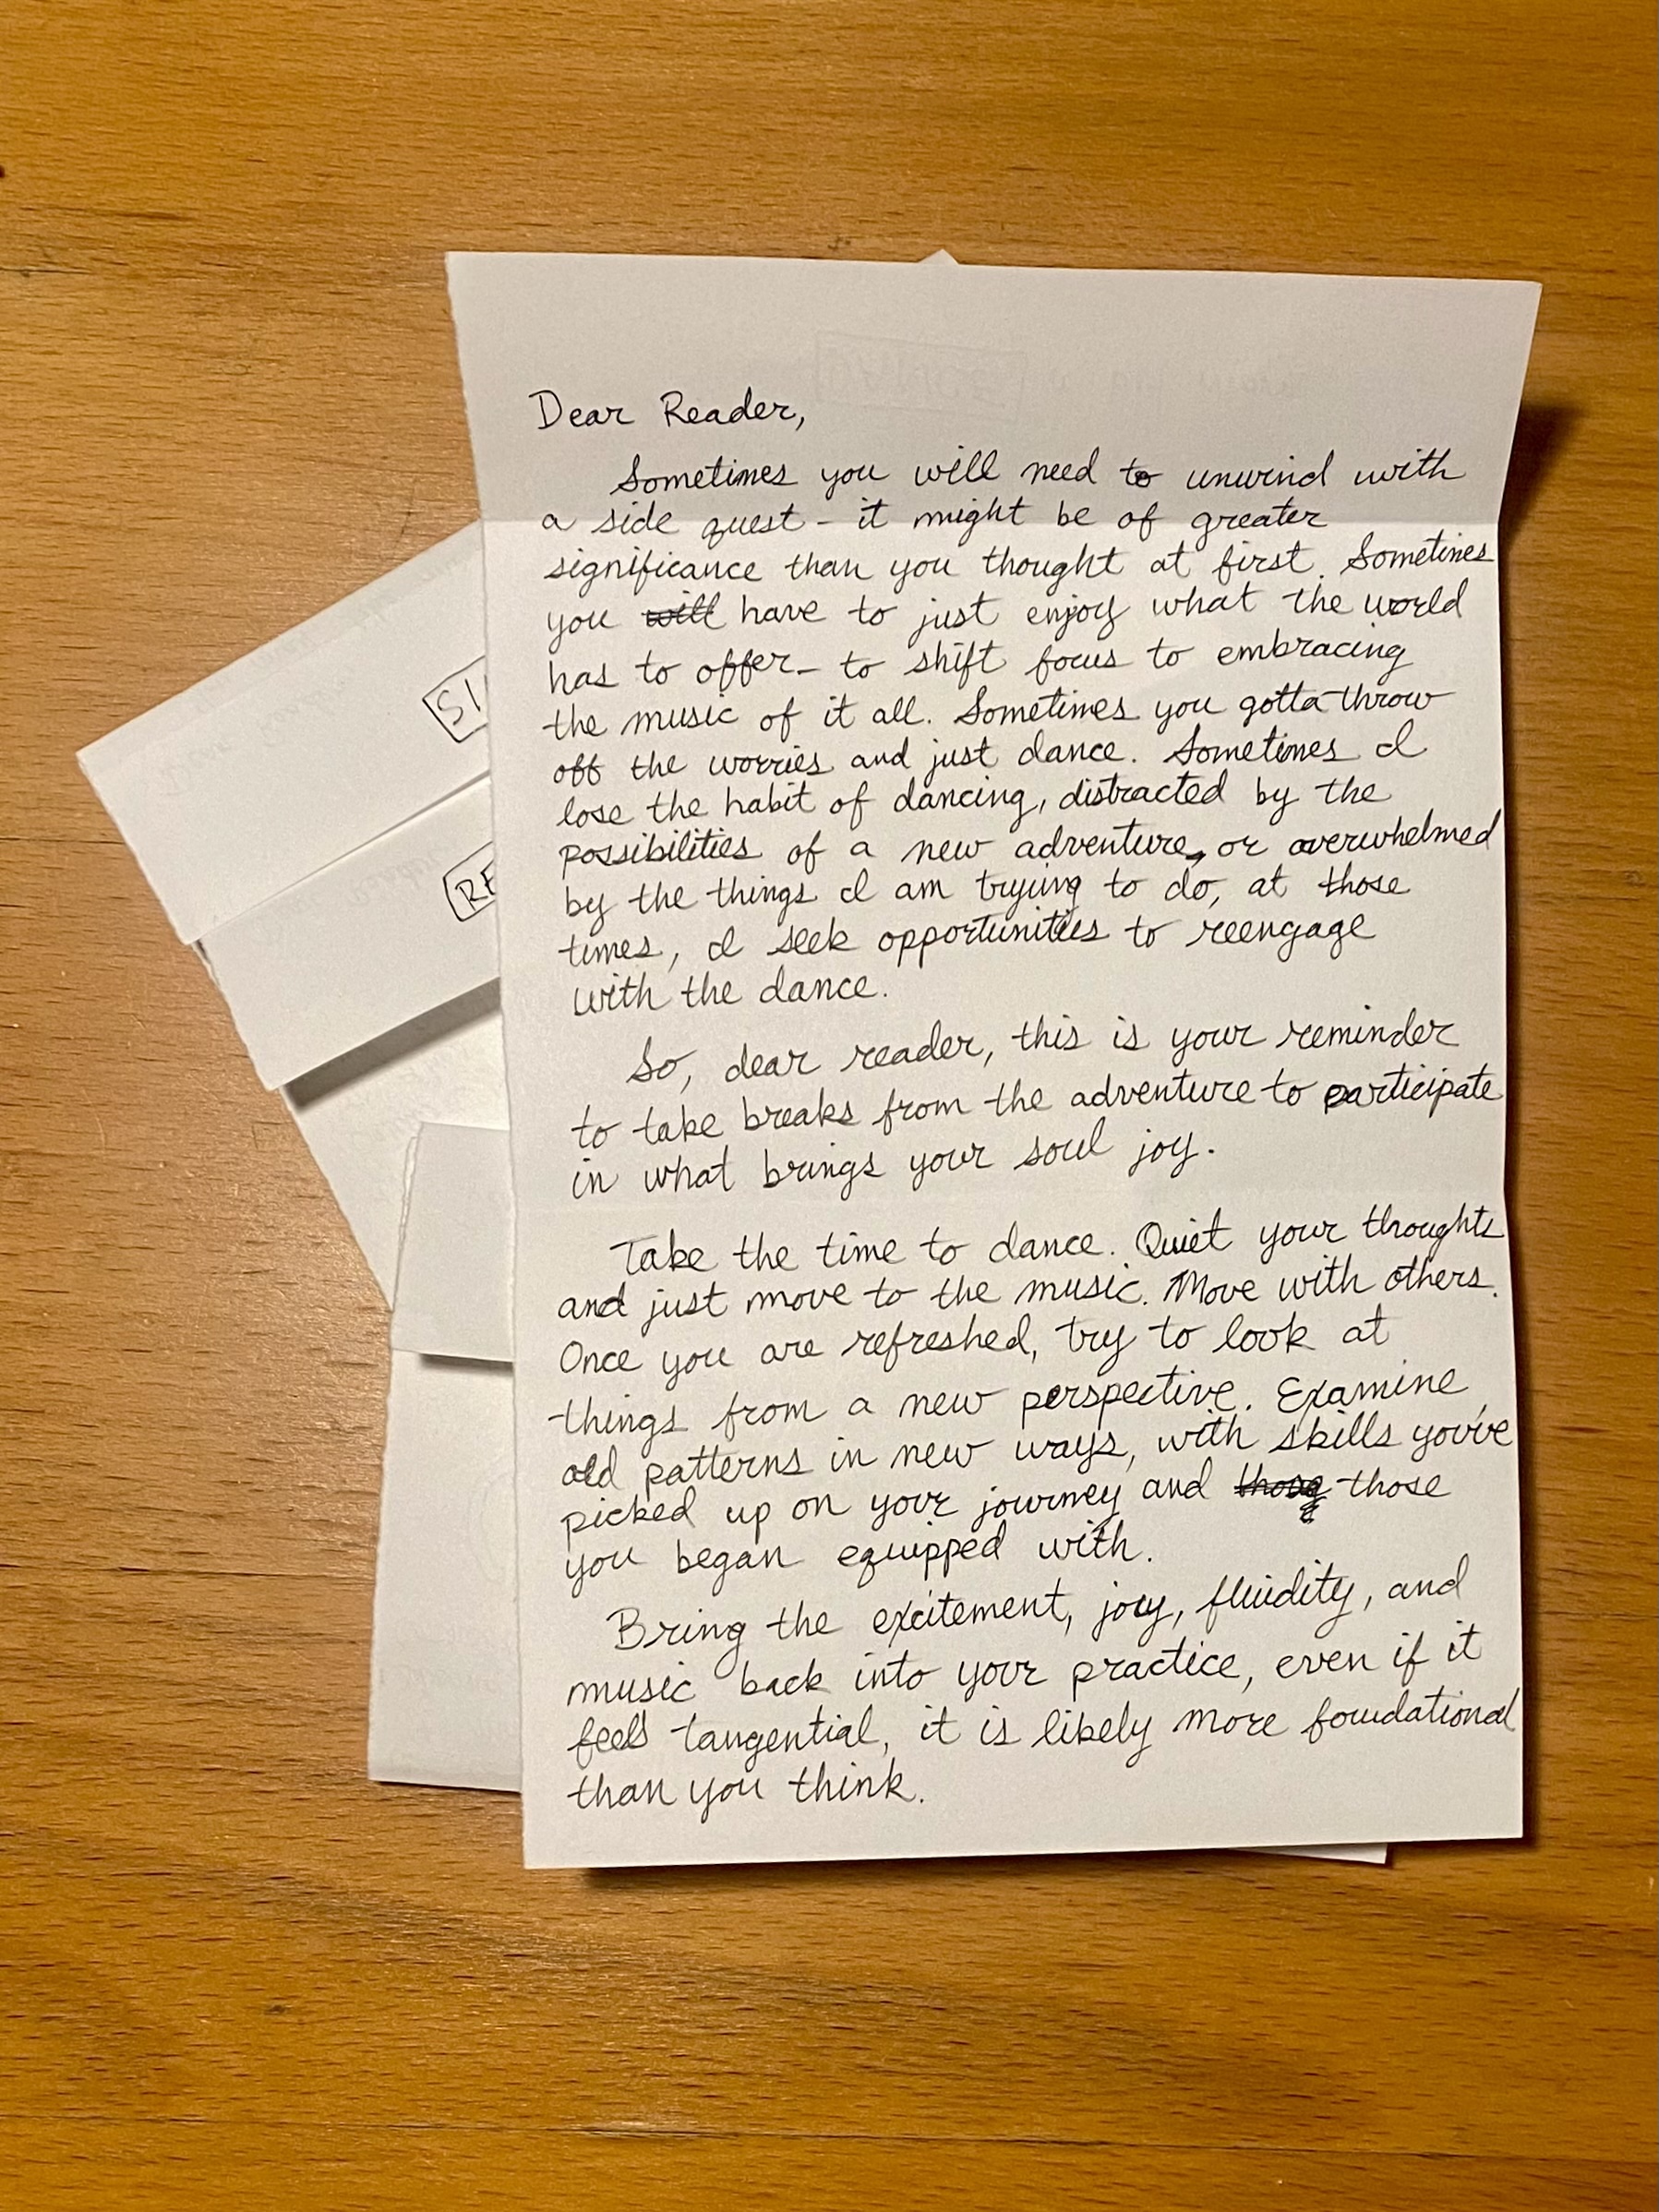 Dear Reader,
Sometimes you will need to unwind with
a side quest - it might be of greater
significance than you thought at first. Sometimes
you will have to just enjoy what the world
has to offer - to shift focus to embracing
the music of it all. Sometimes you gotta throw
off the worries and just dance. Sometimes I
lose the habit of dancing, distracted by the
possibilities of a new adventure, or overwhelmed
by the things I am trying to do, at those
times, I seek opportunities to reengage
with the dance.
So, dear reader, this is your reminder
to take breaks from the adventure to participate
in what brings your soul joy.
Take the time to dance. Quiet your thoughts
and just move to the music. Move with others.
Once you are refreshed, try to look at
things from a new perspective. Examine
old patterns in new ways, with skills you've
picked up on your journey and those
you began equipped with.
Bring the excitement, joy, fluidity, and
music back into your practice, even if it
feels tangential, it is likely more foundational
than you think.
SI
RE